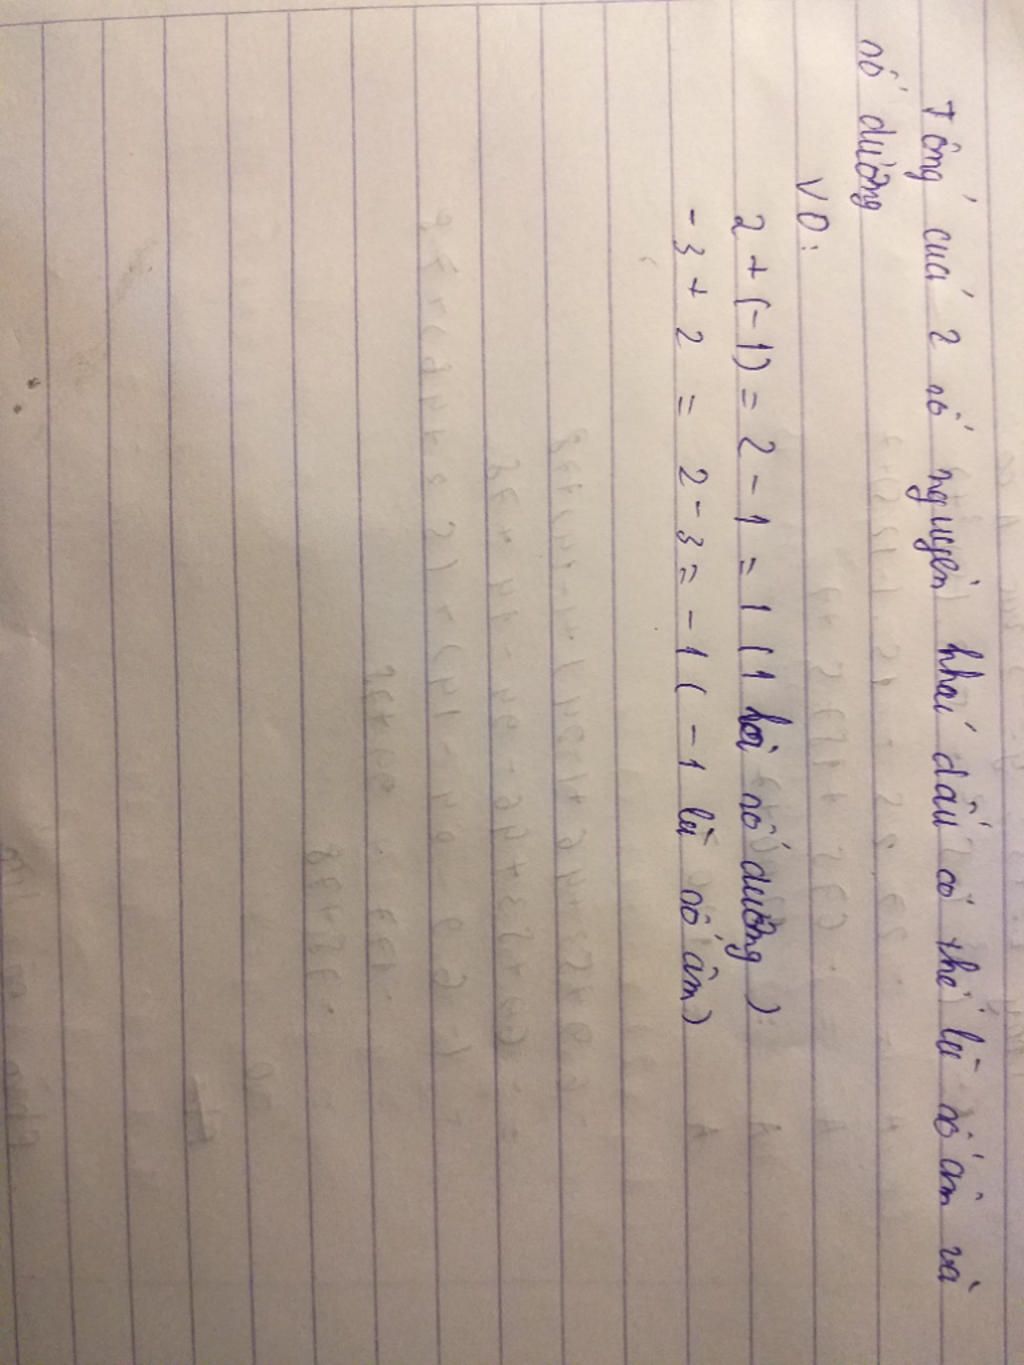 Tổng của 2 số nguyên khái dấu có thể là số âm và
số dương
VD:
2 + (-1) = 2 - 1 = 1 (1 là số dương)
-3 + 2 = 2 - 3 = -1 (-1 là số âm)